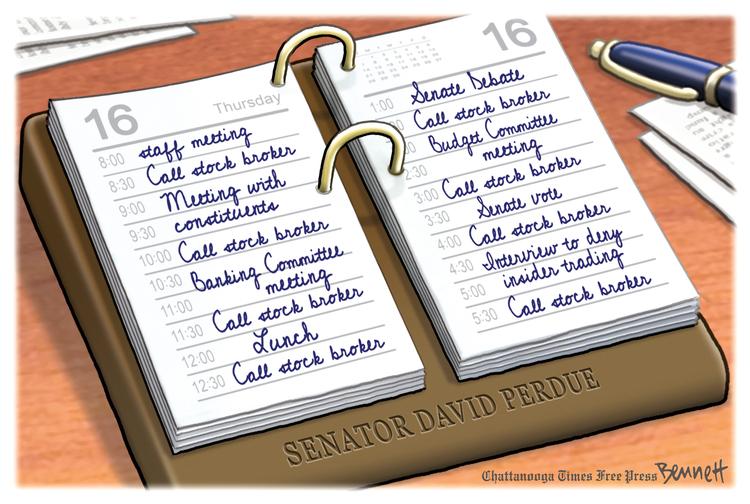 16
Thursday
8:00 staff meeting
8:30 Call stock broker
9:00 Meeting with
9:30 constituents
10:00 Call stock broker
10:30 Banking Committee
11:00 meeting
11:30 Call stock broker
12:00 Lunch
12:30 Call stock broker
16
1:00 Senate Debate
Call stock broker
Budget Committee
2:30 meeting
3:00 Call stock broker
3:30 Senate vote
4:00 Call stock broker
4:30 Interview to deny
5:00 insider trading
5:30 Call stock broker
SENATOR DAVID PERDUE
Chattanooga Times Free Press BENNETT